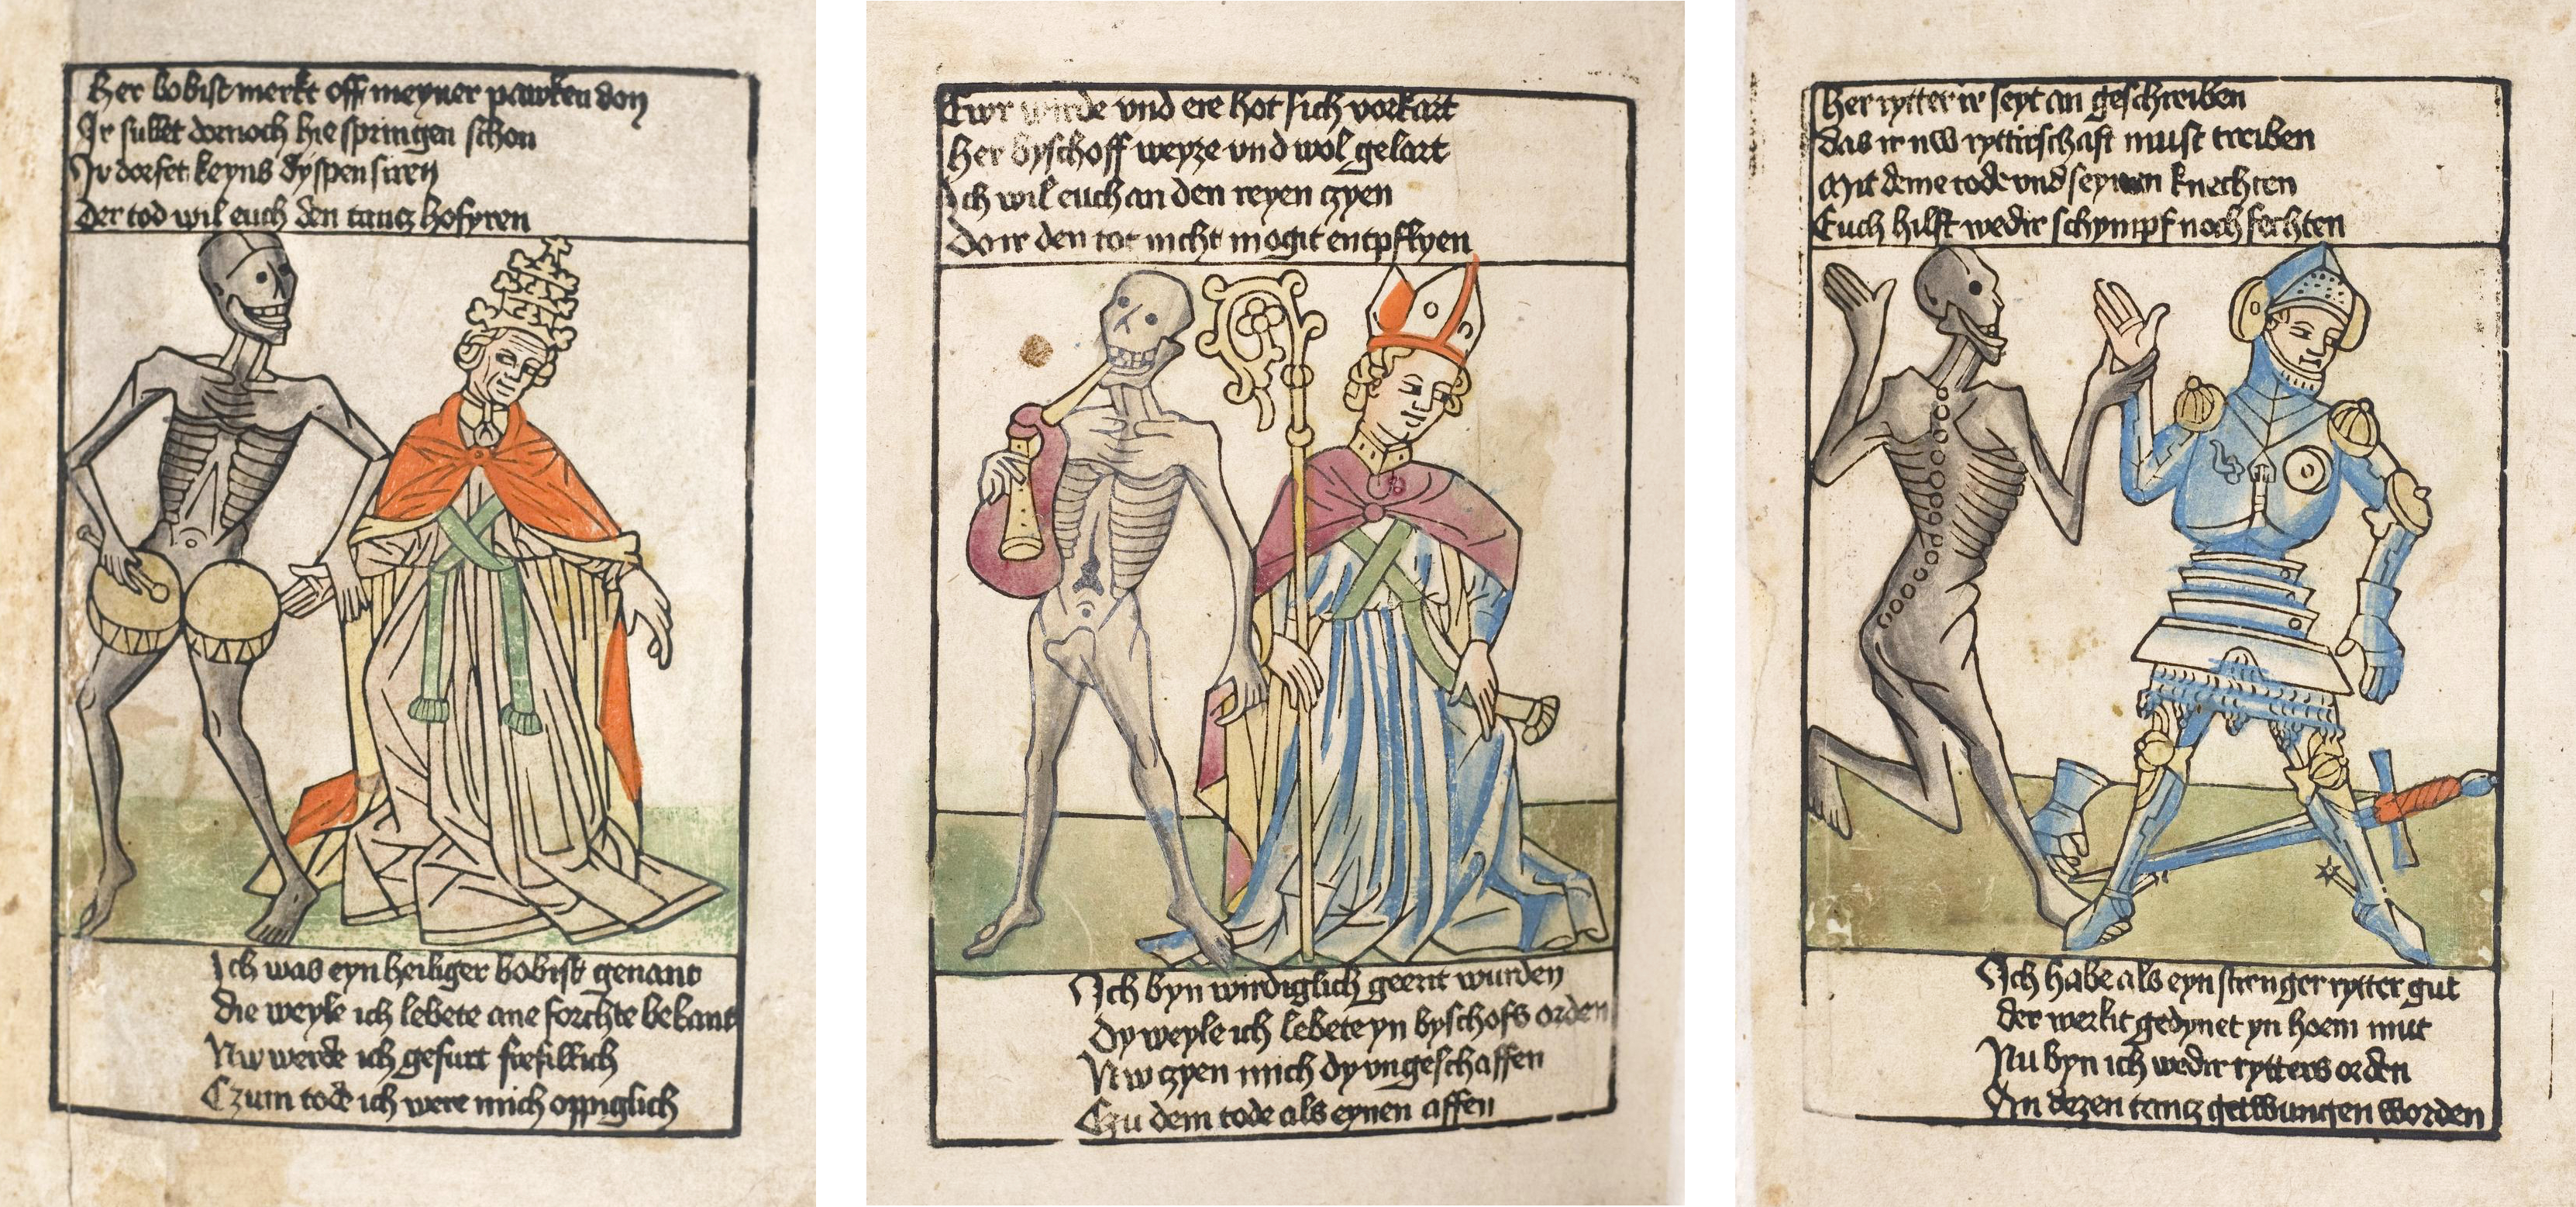 Her bobist merkt off meyner pawken don
Ir sullet dornoch hie springen schon
Ir dorfet keyns dyspensiren
Der tod wil euch den tantz hofyren
Ich was eyn heiliger bobist genant
Die weyle ich lebete ane forchte bekant
Nw werde ich gefurt frefillich
Czum tode ich were mich oppiglich
Ewr wirde vnd ere hot sich vorkart
Her byschoff weyze vnd wol gelart
Ich wil euch an den reyen czyen
Do ir den tot nicht mogit entpflyen
Ich byn wirdiglich geert wurden
Dy weyle ich lebete yn byschofs orden
Nw czyen mich dy vngeschaffen
Czu dem tode als eynen affen
Her rytter ir seyt an geschreiben
das ir nw ryttirschaft must treiben
Mit deme tode vnd seynen knechten
Euch hilft wedir schympf noch fechten
Ich habe als eyn strenger rytter gut
der werlit gedynet yn hoem mut
Nu byn ich wedir rytters orden
An dezen tantz getwungen worden